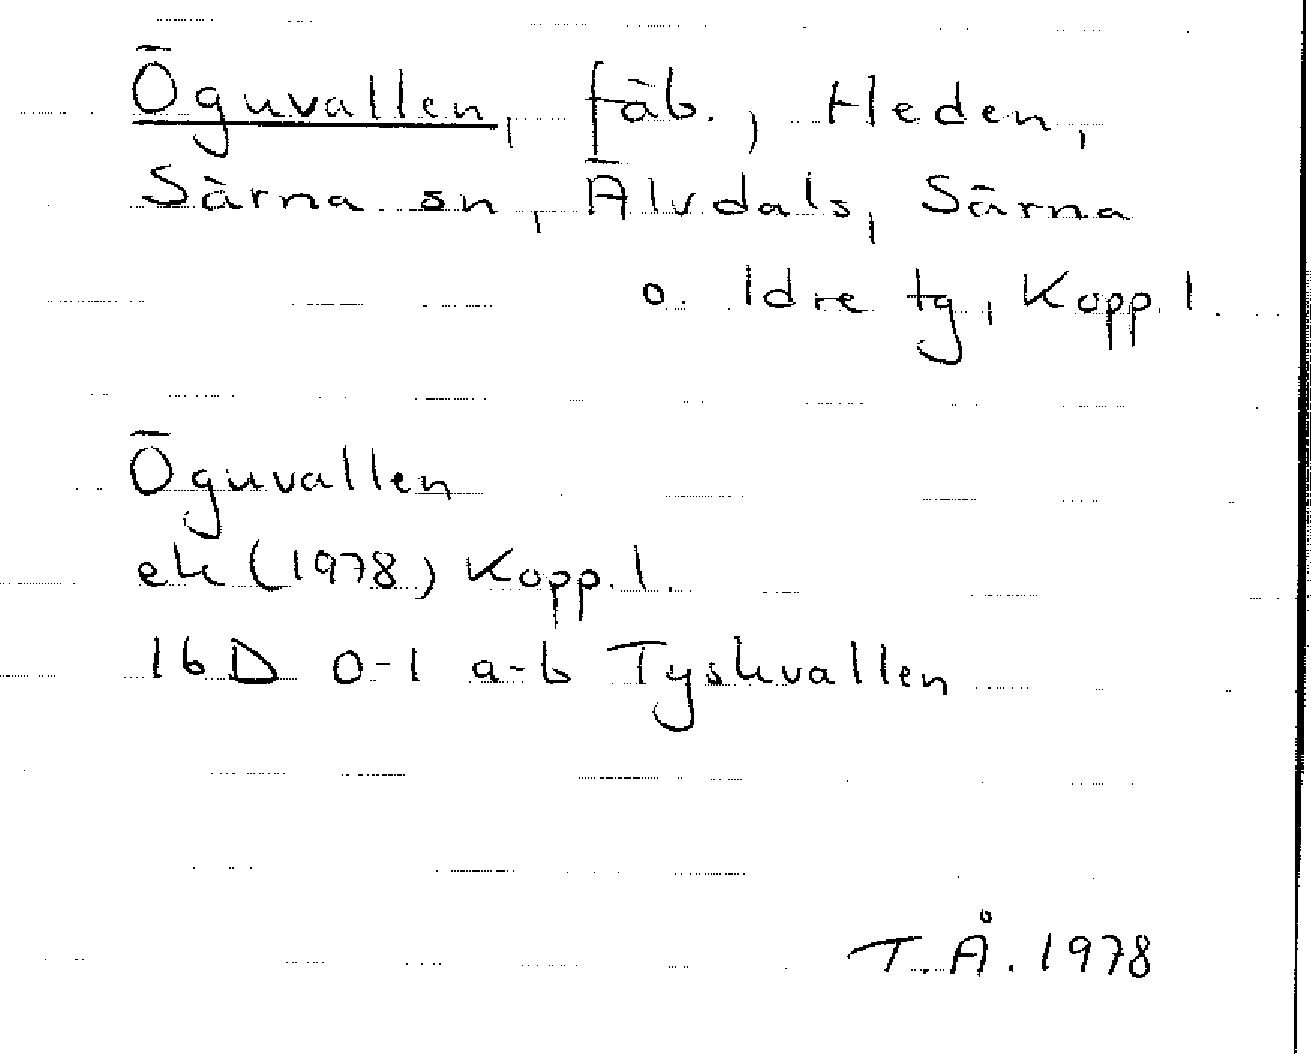 Öguvallen, fäb., Heden,
Särna sn, Älvdals, Särna
o. Idre tg, Kopp. l.
Öguvallen
ek (1978) Kopp. l.
16D 0-1 a-b Tyskvallen
T.Å. 1978